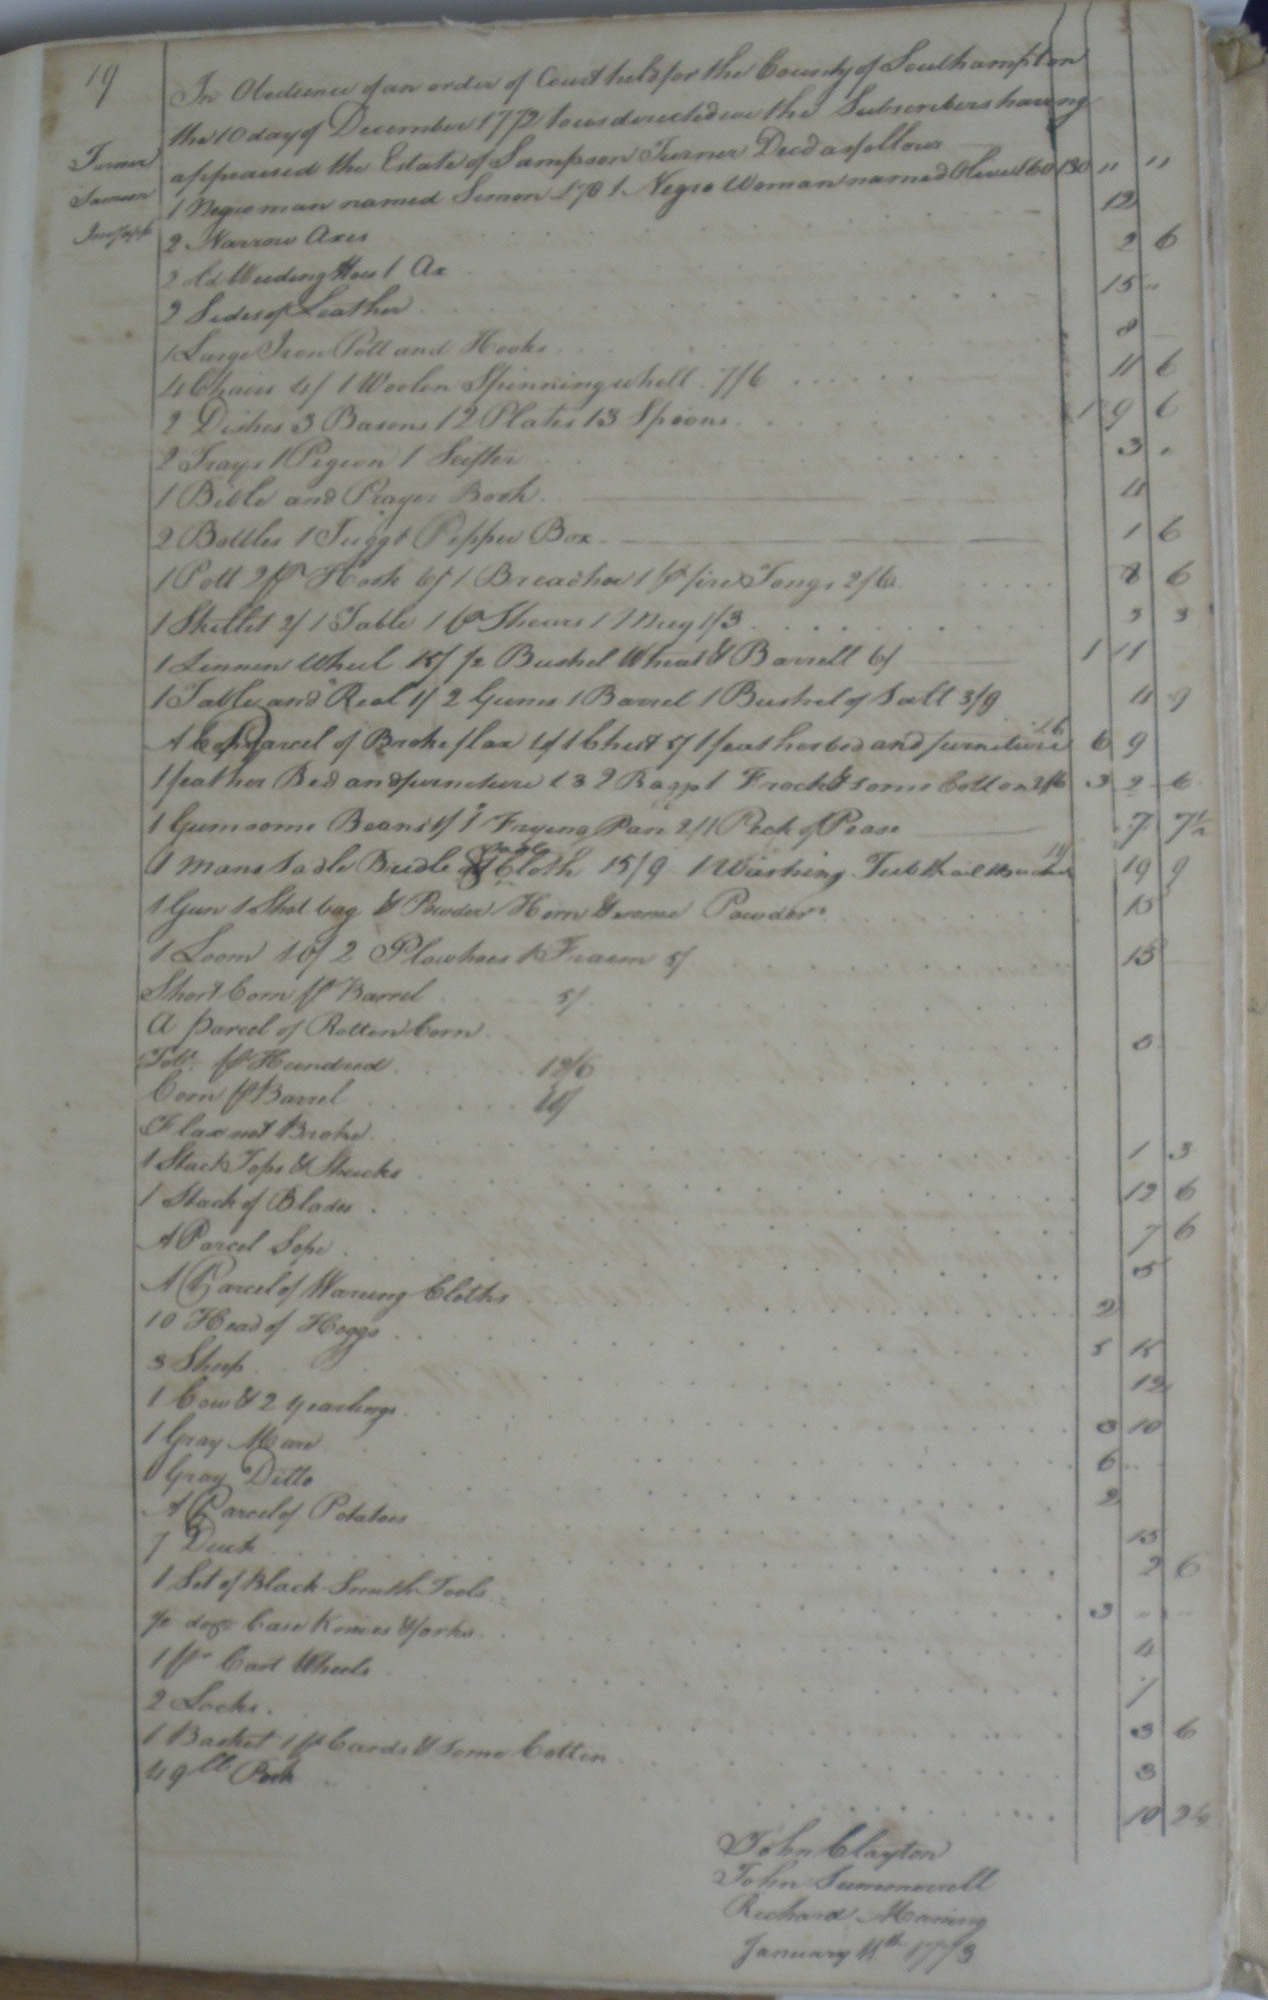 19
In Obedience of an order of Court held for the County of Southampton
the 10 day of December 1772 to us directed we the Subscribers having
appraised the Estate of Sampson Turner Decd as follows
Turner
1 Negro man named Simon £70 1 Negro Woman named Olive £60 130 " "
2 Narrow Axes 12
2 Weeding Hoes 1 Ax 2 6
2 Sides of Leather 15 "
1 Large Iron Pott and Hooks 8
4 Chairs 4/ 1 Woolen Spinning whell 7/6 11 6
2 Dishes 3 Basons 12 Plates 13 Spoons 1 9 6
2 Trays 1 Pigeon 1 Seifter 3 "
1 Bible and Prayer Book 4
2 Bottles 1 Jugg & Pepper Box 1 6
1 Pott 2 pr Hook 6/ 1 Broad hoe 1 pr fire Tongs 2/6 8 6
1 Skillet 2/ 1 Table 1 pr Shears 1 Mug 1/3 3 3
1 Linnen Wheel 15/ 1/2 Bushel Wheat & Barrell 6/ 1 11
1 Table and Reel 1/ 2 Gums 1 Barrel 1 Bushel of Salt 3/9 4 9
A Parcel of Broke flax 4/ 1 Chest 5/ 1 feather bed and furniture £6 6 9
1 feather Bed and furneture £3 2 Baggs 1 Frock & some Cotton 2/6 3 2 6
1 Gum some Beans 1 Frying Pan 2/ 1 Peck of Pease 7 7 1/2
1 Mans Sadle Bridle & Cloth 15/9 1 Washing Tub & 19 9
1 Gun 1 Shot bag & Powder Horn & some Powder 15
1 Loom 10/ 2 Plowhoes 1 Fraem 5/ 15
Short Corn pr Barrel 5/
A parcel of Rotten Corn 5
Tob. pr Hundred 12/6
Corn pr Barrel
Flax not Broke 1 3
1 Stack Tops & Shucks 12 6
1 Stack of Blades 7 6
A Parcel Sope 5
A Parcel of Waring Cloths 2
10 Head of Hoggs 5 15
3 Sheep 12
1 Cow & 2 yearlings 3 10
1 Gray Mare 6
1 Gray Ditto 2
A Parcel of Potatoes 15
7 Duck 2 6
1 Set of Black Smith Tools 3 " "
1/2 doz Case Knives & forks 4
1 pr Cart Wheels 7
2 Locks 3 6
1 Basket 1 pr Cards & some Cotton 3
49 lb Pork 10 2 1/2
John Clayton
John Summerrell
Richard Maning
January 1773